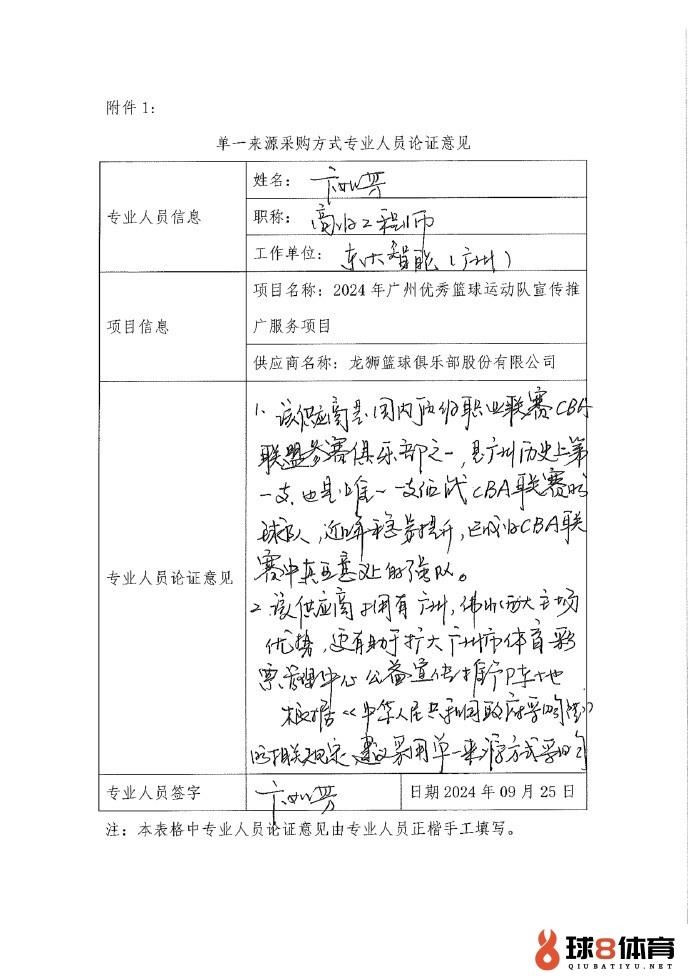 附件 1：
单一来源采购方式专业人员论证意见
专业人员信息
姓名：
职称：高级工程师
工作单位：东大智能（广州）
项目信息
项目名称：2024 年广州优秀篮球运动队宣传推
广服务项目
供应商名称：龙狮篮球俱乐部股份有限公司
专业人员论证意见
1、该供应商是国内顶级职业联赛CBA
联盟参赛俱乐部之一，是广州历史上第
一支、也是唯一一支征战CBA联赛的
球队，近年稳步提升，已成为CBA联
赛中真正意义上的强队。
2、该供应商拥有广州，佛山两大主场
优势，更有助于扩大广州市体育彩
票管理中心公益宣传推广阵地
根据《中华人民共和国政府采购法》
的相关规定，建议采用单一来源方式采购
专业人员签字
日期 2024 年 09 月 25 日
注：本表格中专业人员论证意见由专业人员正楷手工填写。
球8体育
QIUBATIYU.NET